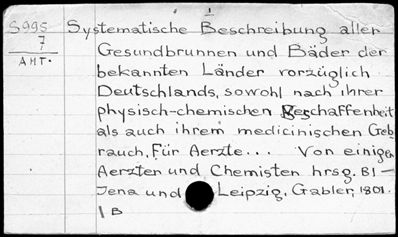 S995
7
AHT.
Systematische Beschreibung aller
Gesundbrunnen und Bäder der
bekannten Länder vorzüglich
Deutschlands, sowohl nach ihrer
physisch-chemischen Beschaffenheit
als auch ihrem medicinischen Geb-
rauch. Für Aerzte... Von einigen
Aerzten und Chemisten hrsg. B1-
Jena und Leipzig, Gabler, 1801.
1B